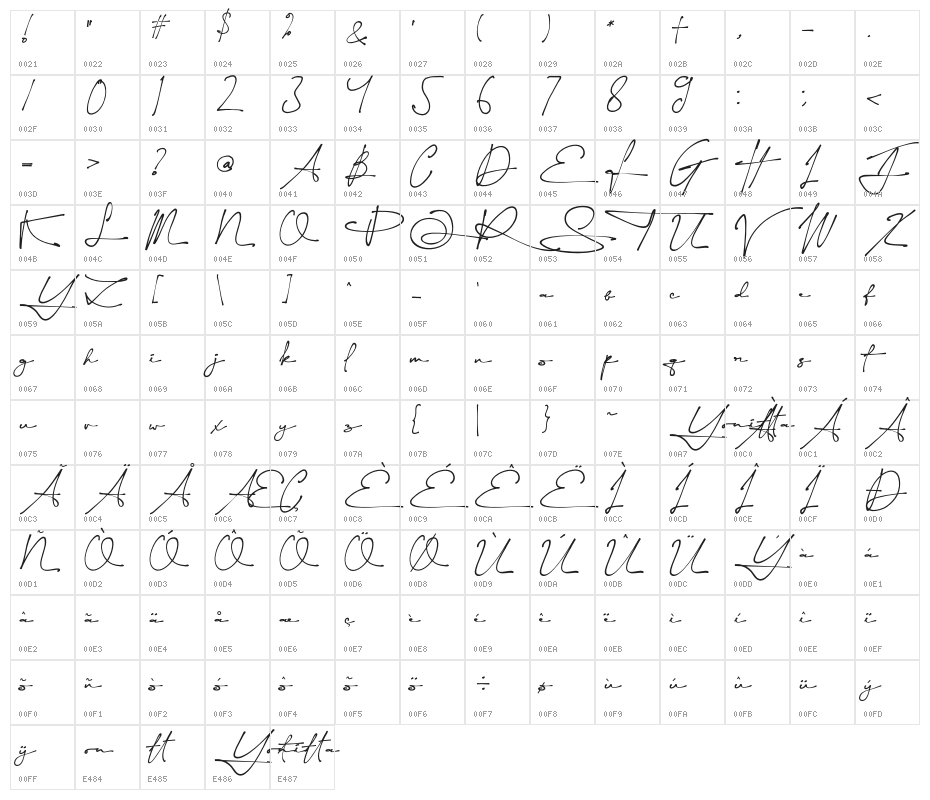 ! " # $ % & ' ( ) * + , - .
0021 0022 0023 0024 0025 0026 0027 0028 0029 002A 002B 002C 002D 002E
/ 0 1 2 3 4 5 6 7 8 9 : ; <
002F 0030 0031 0032 0033 0034 0035 0036 0037 0038 0039 003A 003B 003C
= > ? @ A B C D E F G H I J
003D 003E 003F 0040 0041 0042 0043 0044 0045 0046 0047 0048 0049 004A
K L M N O P Q R S T U V W X
004B 004C 004D 004E 004F 0050 0051 0052 0053 0054 0055 0056 0057 0058
Y Z [ \ ] ^ _ ` a b c d e f
0059 005A 005B 005C 005D 005E 005F 0060 0061 0062 0063 0064 0065 0066
g h i j k l m n o p q r s t
0067 0068 0069 006A 006B 006C 006D 006E 006F 0070 0071 0072 0073 0074
u v w x y z { | } ~ Yonitta À Á Â
0075 0076 0077 0078 0079 007A 007B 007C 007D 007E 00A7 00C0 00C1 00C2
Ã Ä Å Æ Ç È É Ê Ë Ì Í Î Ï Ð
00C3 00C4 00C5 00C6 00C7 00C8 00C9 00CA 00CB 00CC 00CD 00CE 00CF 00D0
Ñ Ò Ó Ô Õ Ö Ø Ù Ú Û Ü Ý à á
00D1 00D2 00D3 00D4 00D5 00D6 00D8 00D9 00DA 00DB 00DC 00DD 00E0 00E1
â ã ä å æ ç è é ê ë ì í î ï
00E2 00E3 00E4 00E5 00E6 00E7 00E8 00E9 00EA 00EB 00EC 00ED 00EE 00EF
õ ñ ò ó ô õ ö ÷ ø ù ú û ü ý
00F0 00F1 00F2 00F3 00F4 00F5 00F6 00F7 00F8 00F9 00FA 00FB 00FC 00FD
ÿ on tt Yonitta
00FF E484 E485 E486 E487